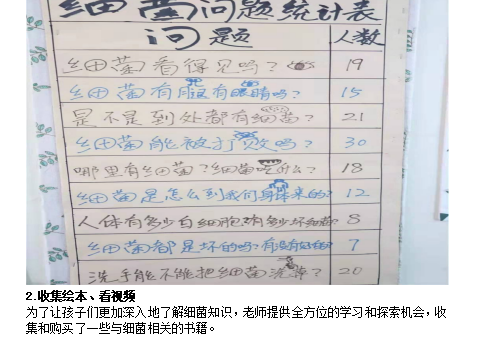 细菌问题统计表
问题 人数
细菌看得见吗? 19
细菌有腿有眼睛吗? 15
是不是到处都有细菌? 21
细菌能被打败吗? 30
哪里有细菌?细菌吃什么? 18
细菌是怎么到我们身体来的? 12
人体有多少白细胞有多少坏细菌 8
细菌都是坏的吗?有没有好的 7
洗手能不能把细菌洗掉? 20
2.收集绘本、看视频
为了让孩子们更加深入地了解细菌知识，老师提供全方位的学习和探索机会，收
集和购买了一些与细菌相关的书籍。